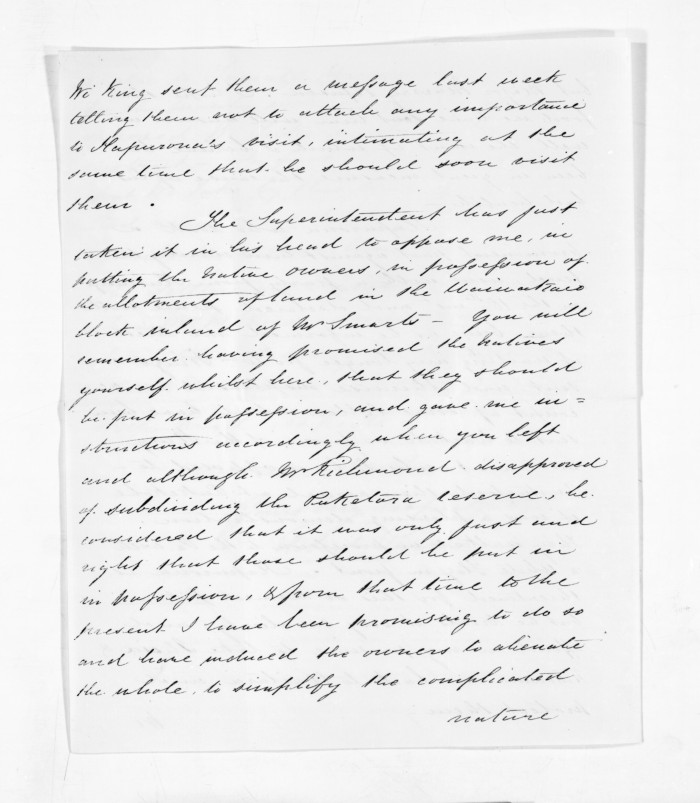 Wi King sent them a message last week
telling them not to attach any importance
to Hapurona's visit, intimating at the
same time that he should soon visit
them.
The Superintendent has just
taken it in his head to oppose me, in
putting the native owners, in possession of
the allotments of land in the Waiwakaio
block inland of Mr Smarts — You will
remember having promised the natives
yourself whilst here, that they should
be put in possession, and gave me in=
structions accordingly when you left
and although Mr Richmond disapproved
of subdividing the Puketotara reserve, he
considered that it was only just and
right that those should be put in
in possession, & from that time to the
present I have been promising to do so
and have induced the owners to alienate
the whole, to simplify the complicated
nature